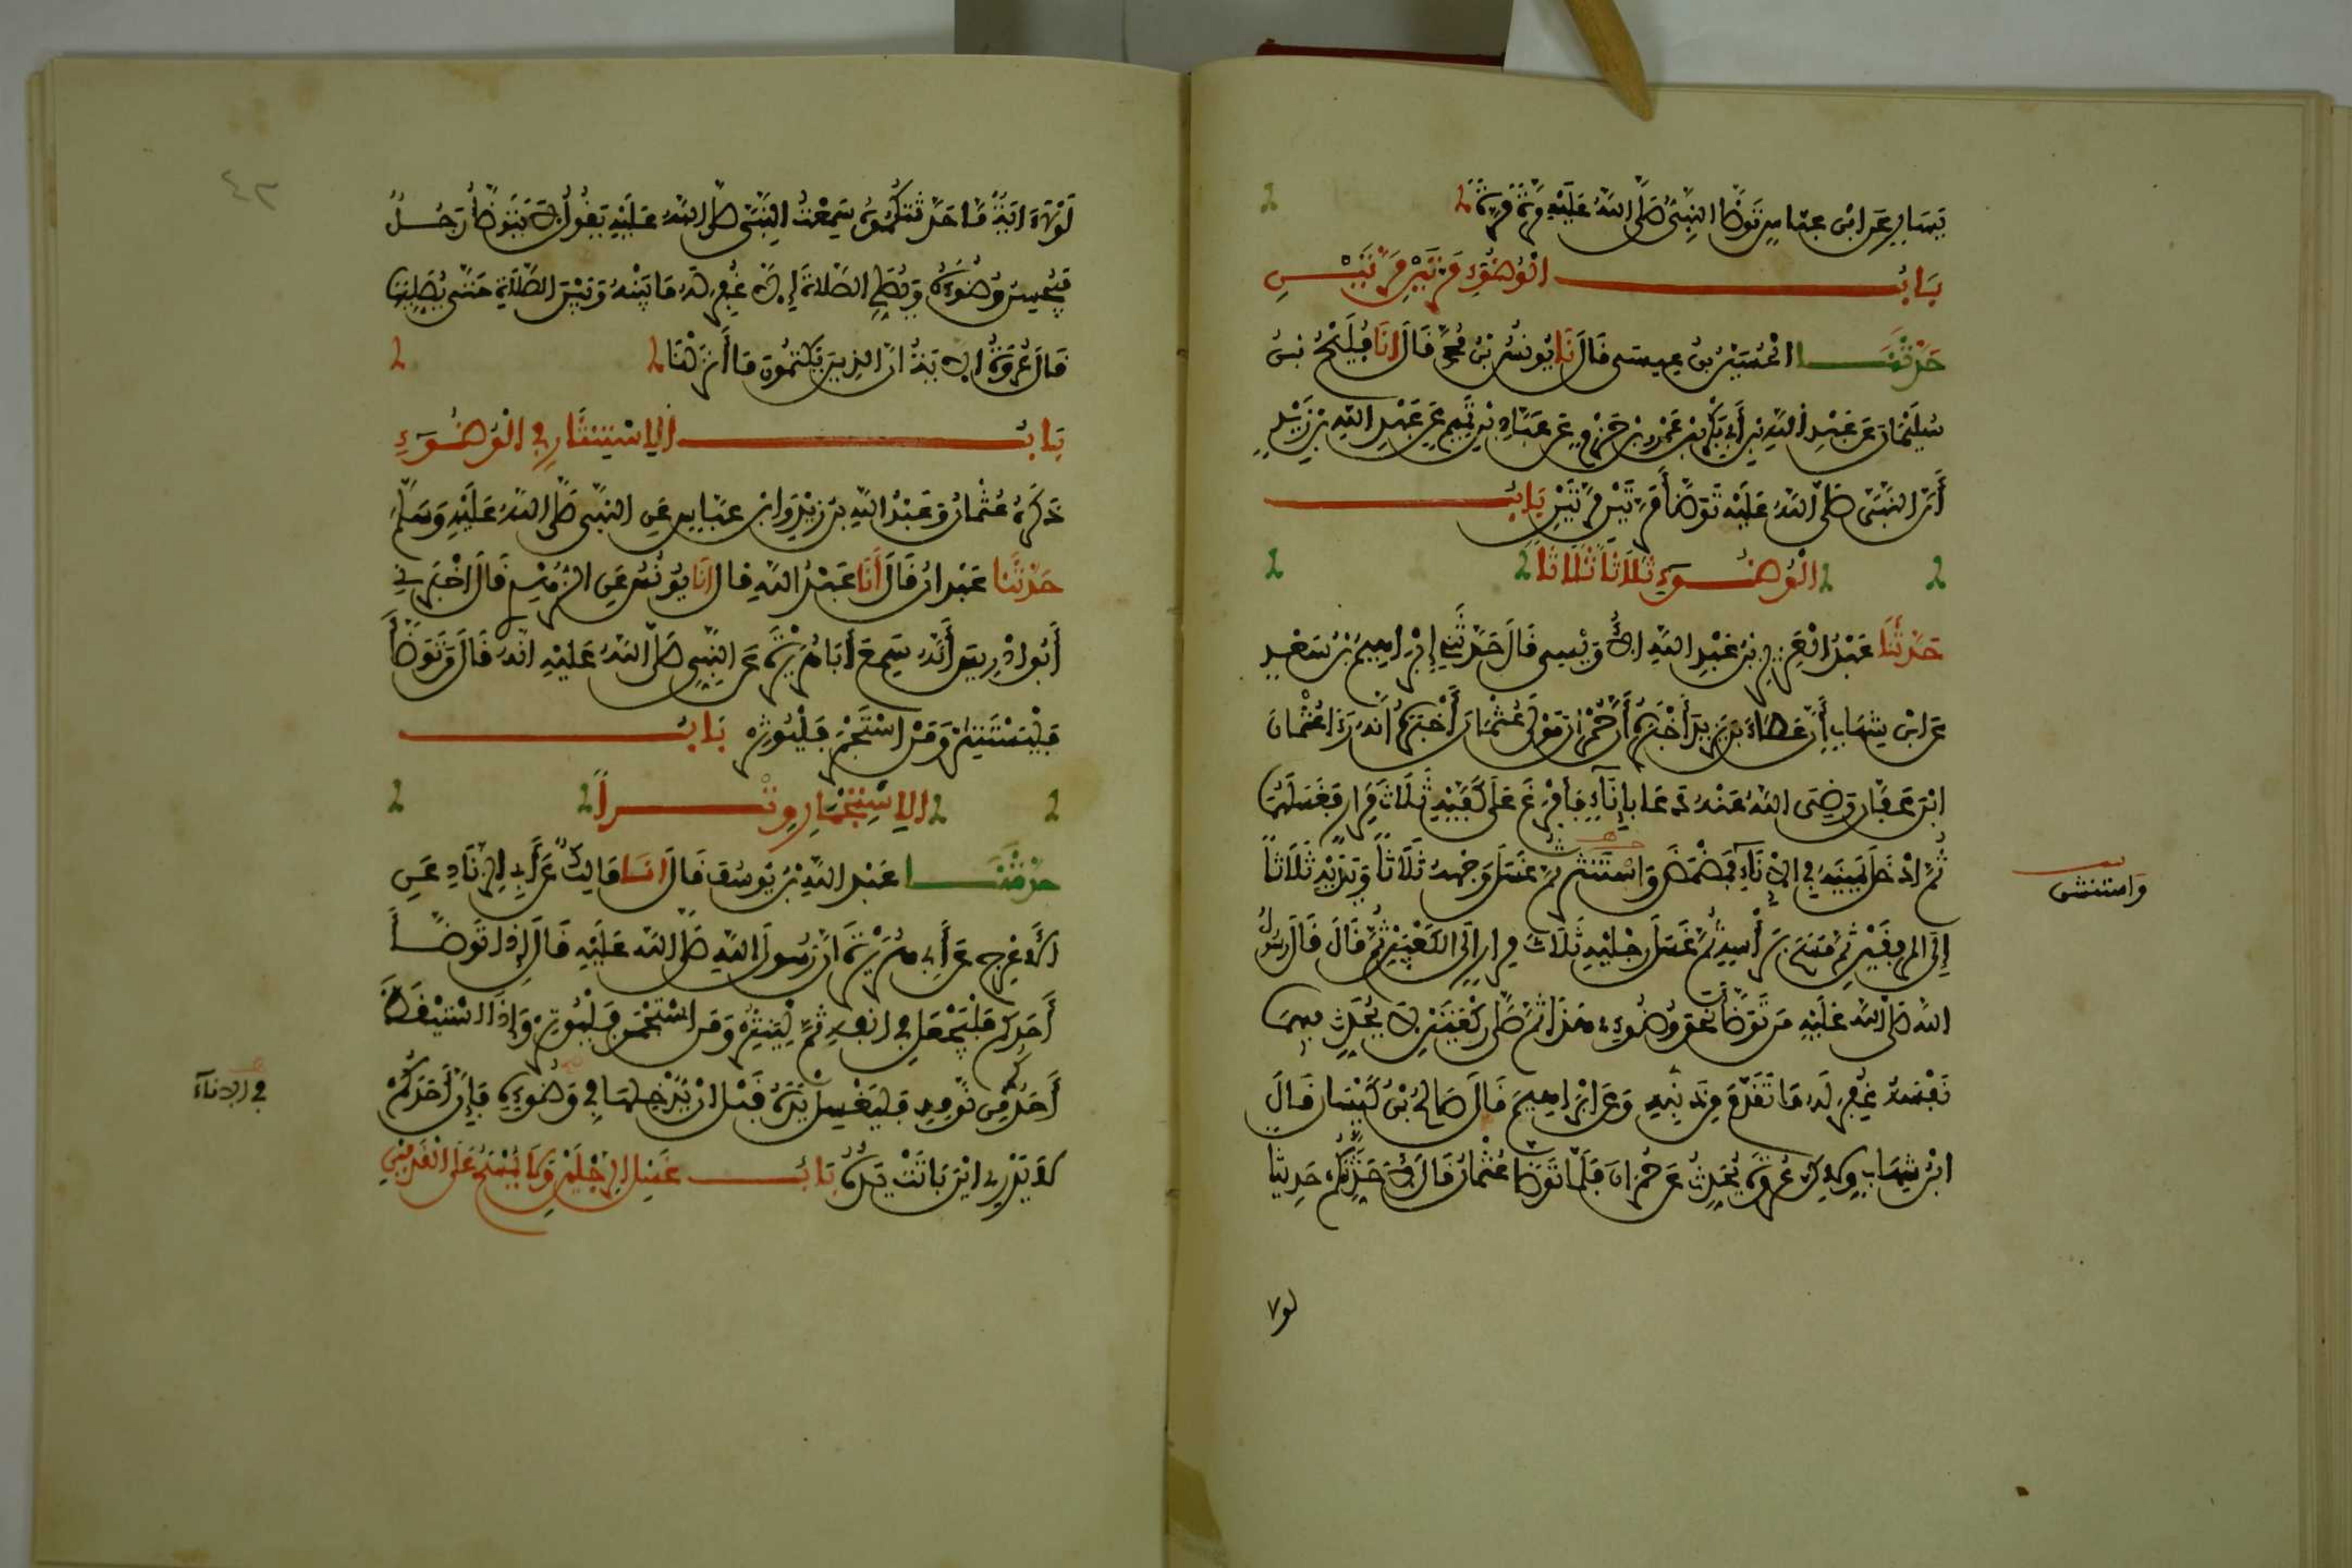 يَسَارٍ عَنِ ابْنِ عبّاسٍ تَوَضَّأَ النبِيُّ صَلَّى اللهُ عَلَيْهِ مَرَّةً مَرَّةً
بَابُ الْوُضُوءِ مَرَّتَيْنِ مَرَّتَيْنِ
حَدَّثَنَا الْحُسَيْنُ بنُ عِيسَى قَالَ نَا يُونُسُ بْنُ مُحَمَّدٍ قَالَ انَا فُلَيْحُ بنُ
سُلَيْمَانَ عَنْ عَبْدِ اللهِ بْنِ أَبِي بَكْرِ بْنِ عَمْرِو بْنِ حَزْمٍ عَنْ عَبَّادِ بْنِ تَمِيمٍ عَنْ عَبْدِ اللهِ بْنِ زَيْدٍ
أَنَّ النَّبِيَّ صَلَّى اللهُ عَلَيْهِ تَوَضَّأَ مَرَّتَيْنِ مَرَّتَيْنِ بَابُ
الْوُضُوءِ ثَلَاثاً ثَلَاثاً
حَدَّثَنَا عَبْدُ الْعَزِيزِ بْنُ عَبْدِ اللهِ الأُوَيْسِي قَالَ حَدَّثَنِي إِبْرَاهِيمُ بْنُ سَعْدٍ
عَنِ ابْنِ شِهَابٍ أَنَّ عَطَاءَ بْنَ يَزِيدَ أَخْبَرَهُ أَنَّ حُمْرَانَ مَوْلَى عُثْمَانَ أَخْبَرَهُ أَنَّهُ رَءَا عُثْمَانَ
ابْنَ عَفَّانَ رَضِيَ اللهُ عَنْهُ دَعَا بِإِنَاءٍ فَأَفْرَغَ عَلَى كَفَّيْهِ ثَلَاثَ مِرَارٍ فَغَسَلَهُمَا
ثُمَّ ادْخَلَ يَمِينَهُ فِي الإِنَاءِ فَمَضْمَضَ وَاسْتَنْثَرَ ثُمَّ غَسَلَ وَجْهَهُ ثَلَاثاً وَيَدَيْهِ ثَلَاثاً
وَاستنشق
إِلَى المرفِقَيْنِ ثُمَّ مَسَحَ بِرَأْسِهِ ثُمَّ غَسَلَ رِجْلَيْهِ ثَلَاثَ مِرَارٍ إِلَى الْكَعْبَيْنِ ثُمَّ قَالَ قَالَ رَسُولُ
اللهِ صَلَّى اللهُ عَلَيْهِ مَنْ تَوَضَّأَ نَحْوَ وُضُوءِي هَذَا ثُمَّ صَلَّى رَكْعَتَيْنِ لَا يُحَدِّثُ فِيهِمَا
نَفْسَهُ غُفِرَ لَهُ مَا تَقَدَّمَ مِنْ ذَنْبِهِ وَعَنْ ابْرَاهِيمَ قَالَ صَالِحُ بْنُ كَيْسَانَ قَالَ
ابْنُ شِهَابٍ وَلَكِنْ عُرْوَةُ يُحَدِّثُ عَنْ حُمْرَانَ فَلَمَّا تَوَضَّأَ عُثْمَانُ قَالَ لَأُحَدِّثَنَّكُمْ حَدِيثاً
٤٢
لَوْلَا ءَايَةٌ مَّا حَدَّثْتُكُمُوهُ سَمِعْتُ النَّبِيَّ صَلَّى اللهُ عَلَيْهِ يَقُولُ لَا يَتَوَضَّأُ رَجُلٌ
فَيُحْسِنُ وُضُوءَهُ وَيُصَلِّي الصَّلَاةَ إِلَّا غُفِرَ لَهُ مَا بَيْنَهُ وَبَيْنَ الصَّلَاةِ حَتَّى يُصَلِّيَهَا
قَالَ عُرْوَةُ الآيَةُ انَّ الذِينَ يَكْتُمُونَ مَا أَنزَلْنَا
بَابُ الاِسْتِنْثَارِ فِي الْوُضُوءِ
ذَكَرَهُ عُثْمَانُ وَعَبْدُ اللهِ بْنُ زَيْدٍ وَابْنُ عَبَّاسٍ عَنِ النبِّي صَلَّى اللهُ عَلَيْهِ وَسَلَّمَ
حَدَّثَنَا عَبْدَانُ قَالَ أَنَا عَبْدُ اللهِ قَالَ انَا يُونُسُ عَنِ الزُّهْرِيِّ قَالَ اخْبَرَنِي
أَبُو ادْرِيسَ أَنَّهُ سَمِعَ أَبَا هُرَيْرَةَ عَنِ النَّبِيِّ صَلَّى اللهُ عَلَيْهِ انَّهُ قَالَ مَنْ تَوَضَّأَ
فَلْيَسْتَنْثِرْ وَمَنْ اسْتَجْمَرَ فَلْيُوتِرْ بَابُ
الاِسْتِجْمَارِ وِتْراً
حدَّثَنَا عَبْدُ اللهِ بْنُ يُوسُفَ قَالَ انَا مَالِكٌ عَنْ أَبِي الزِّنَادِ عَنِ
الأَعْرَجِ عَنْ أَبِي هُرَيْرَةَ أَنَّ رَسُولَ اللهِ صَلَّى اللهُ عَلَيْهِ قَالَ إِذَا تَوَضَّأَ
أَحَدُكُمْ فَلْيَجْعَلْ فِي انفِهِ ثُمَّ لْيَنْثِرْ وَمَنِ اسْتَجْمَرَ فَلْيُوتِرْ وَإِذَا اسْتَيْقَظَ
أَحَدُكُمْ مِن نَّوْمِهِ فَلْيَغْسِلْ يَدَهُ قَبْلَ انْ يُدْخِلَهَا فِي وَضُوءِهِ فَإِنَّ أَحَدَكُمْ
في الإناء
لَا يَدْرِي ايْنَ بَاتَتْ يَدُهُ بَابُ غَسْلِ الرِّجْلَيْنِ وَلَا يُمْسَحُ عَلَى الْقَدَمَيْنِ